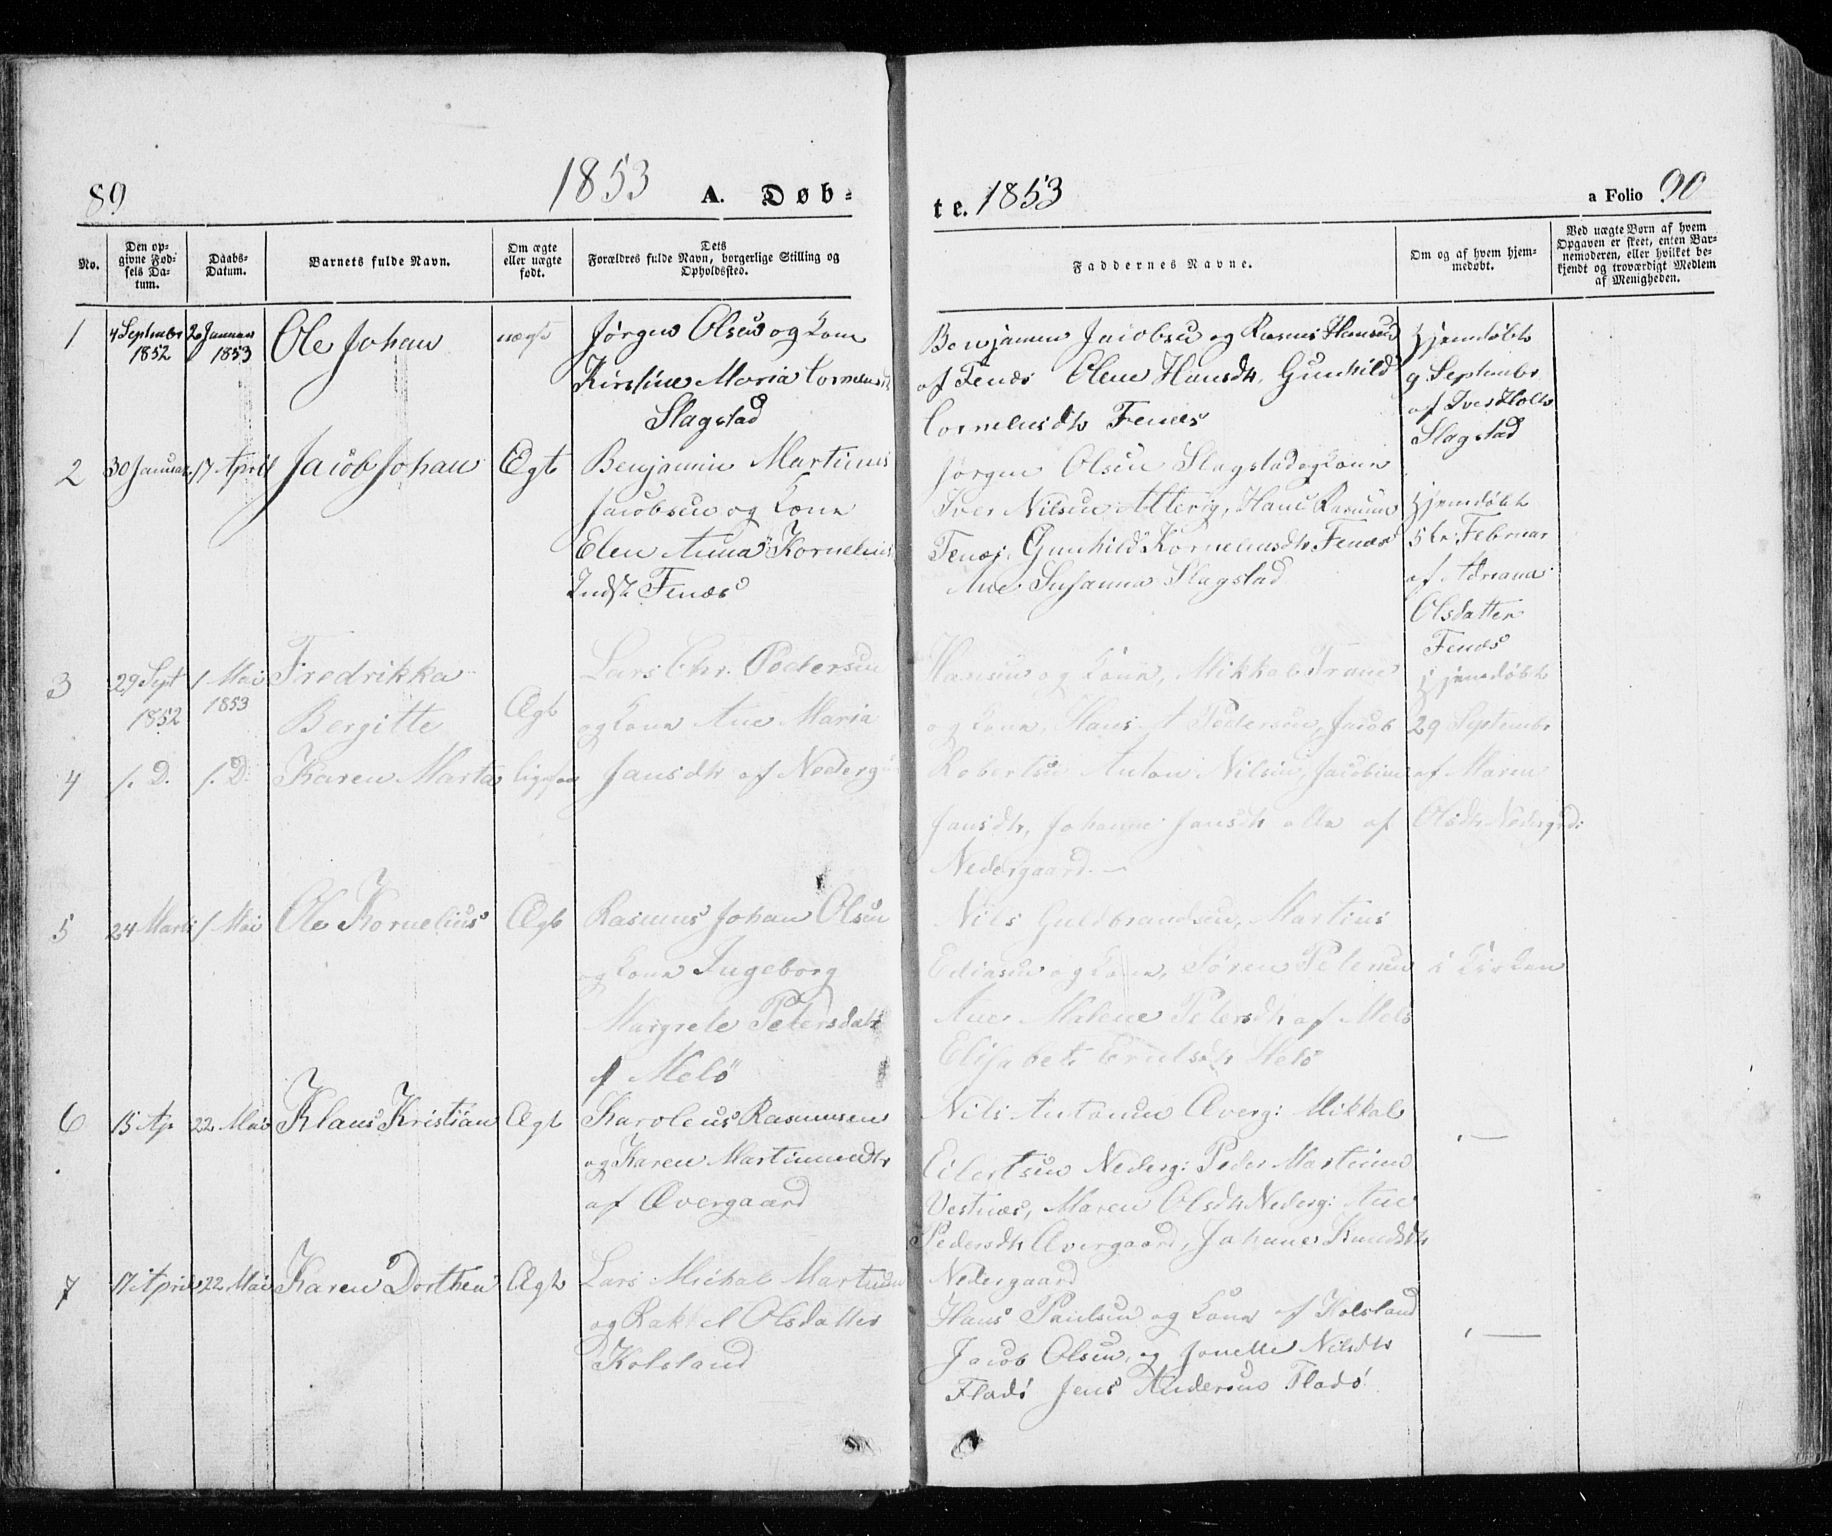 89
1853
A. Døb-
te. 1853
a Folio 90
No.
Den op-
givne Fød-
sels Da-
tum.
Daabs-
Datum.
Barnets fulde Navn.
Om ægte
eller uægte
født.
Dets
Forældres fulde Navn, borgerlige Stilling og
Opholdssted.
Faddernes Navne.
Om og af hvem hjem-
medøbt.
Ved uægte Børn af hvem
Opgaven er skeet, enten Bar-
nemoderen, eller hvilket be-
kjendt og troværdigt Medlem
af Menigheden.
1
4 Septembr
1852
2 Januar
1853
Ole Johan
uægte
Jørgen Olsen og Kone
Kirstine Maria
Slagstad
Benjamin Jacobsen og Rasmus Hansen
af Fenæs Elene Hansdtr, Gunhild
Corneliusdtr Fenæs
Hjemdøbt
9 Septembr
af Iver Holte
Slagstad
2
30 Januar
17 April
Jacob Johan
Ægt
Benjamin Martinus
Jacobsen og Kone
Elen Anna Kornelius
Fenæs
Jørgen Olsen Slagstad og Kone
Iver Nilsen Hans
Fenæs, Gunhild Korneliusdtr Fenæs
Ane Susanna Slagstad
Hjemdøbt
5te Februar
af Adriana
Olsdatter
Fenæs
3
29 Sept
1852
1 Mai
1853
Fredrikka
Bergitte
Ægt
Lars Chr. Pedersen
og Kone Ane Maria
Hansen og Kone, Mikkal
og Kone, Hans A Pedersen, Jacob
Hjemdøbt
29 Septembr
4
s. D.
s. D.
Karen Marta
ligesaa
Jansdtr af Nederg
Robertsen Anton Nilsen, Jacobine
Jansdtr, Johanne Jansdtr alle af
Nedergaard.
af Maren
Olsdtr Nedergrd:
5
24 Marts
1 Mai
Ole Kornelius
Ægt
Rasmus Johan Olsen
og Kone Ingeborg
Margrete Petersdatr
af Melö
Nils Guldbrandsen, Martins
og Kone, Søren Petersen
Ane Malene Petersdtr af Melö
Elisabet Melö
i Kirken
6
15 Ap
22 Mai
Klaus Kristian
Ægt
Karoleus Rasmusen
og Karen
af Øvergaard
Nils Antonsen Øverg: Mikkal
Eilertsen Nederg: Peder
Vestnæs, Maren Olsdtr Nederg: Ane
Pedersdtr Øvergaard, Johane
Nedergaard
7
17 April
22 Mai
Karen Dorthea
Ægt
Lars Michal
og Rakel Olsdatter
Kolsland
Hans Paulsen og Kone af Kolsland
Jacob Olsen, og Jonette Nilsdtr
Fladö Jens Andersen Fladö